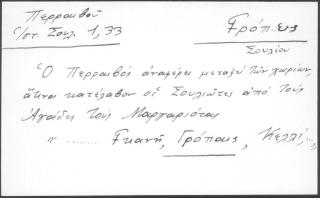 Περραιβοῦ
Ἱστ. Σουλ. 1,33
Γρόπους
Σουλίου
Ὁ Περραιβός ἀναφέρει μεταξύ τῶν χωρίων,
ἅτινα κατέλαβον οἱ Σουλιῶται ἀπό τούς
Ἀγάδες τοῦς Μαργαριόται
" ........ Γκανῆ, Γρόπους, Κελλί...,